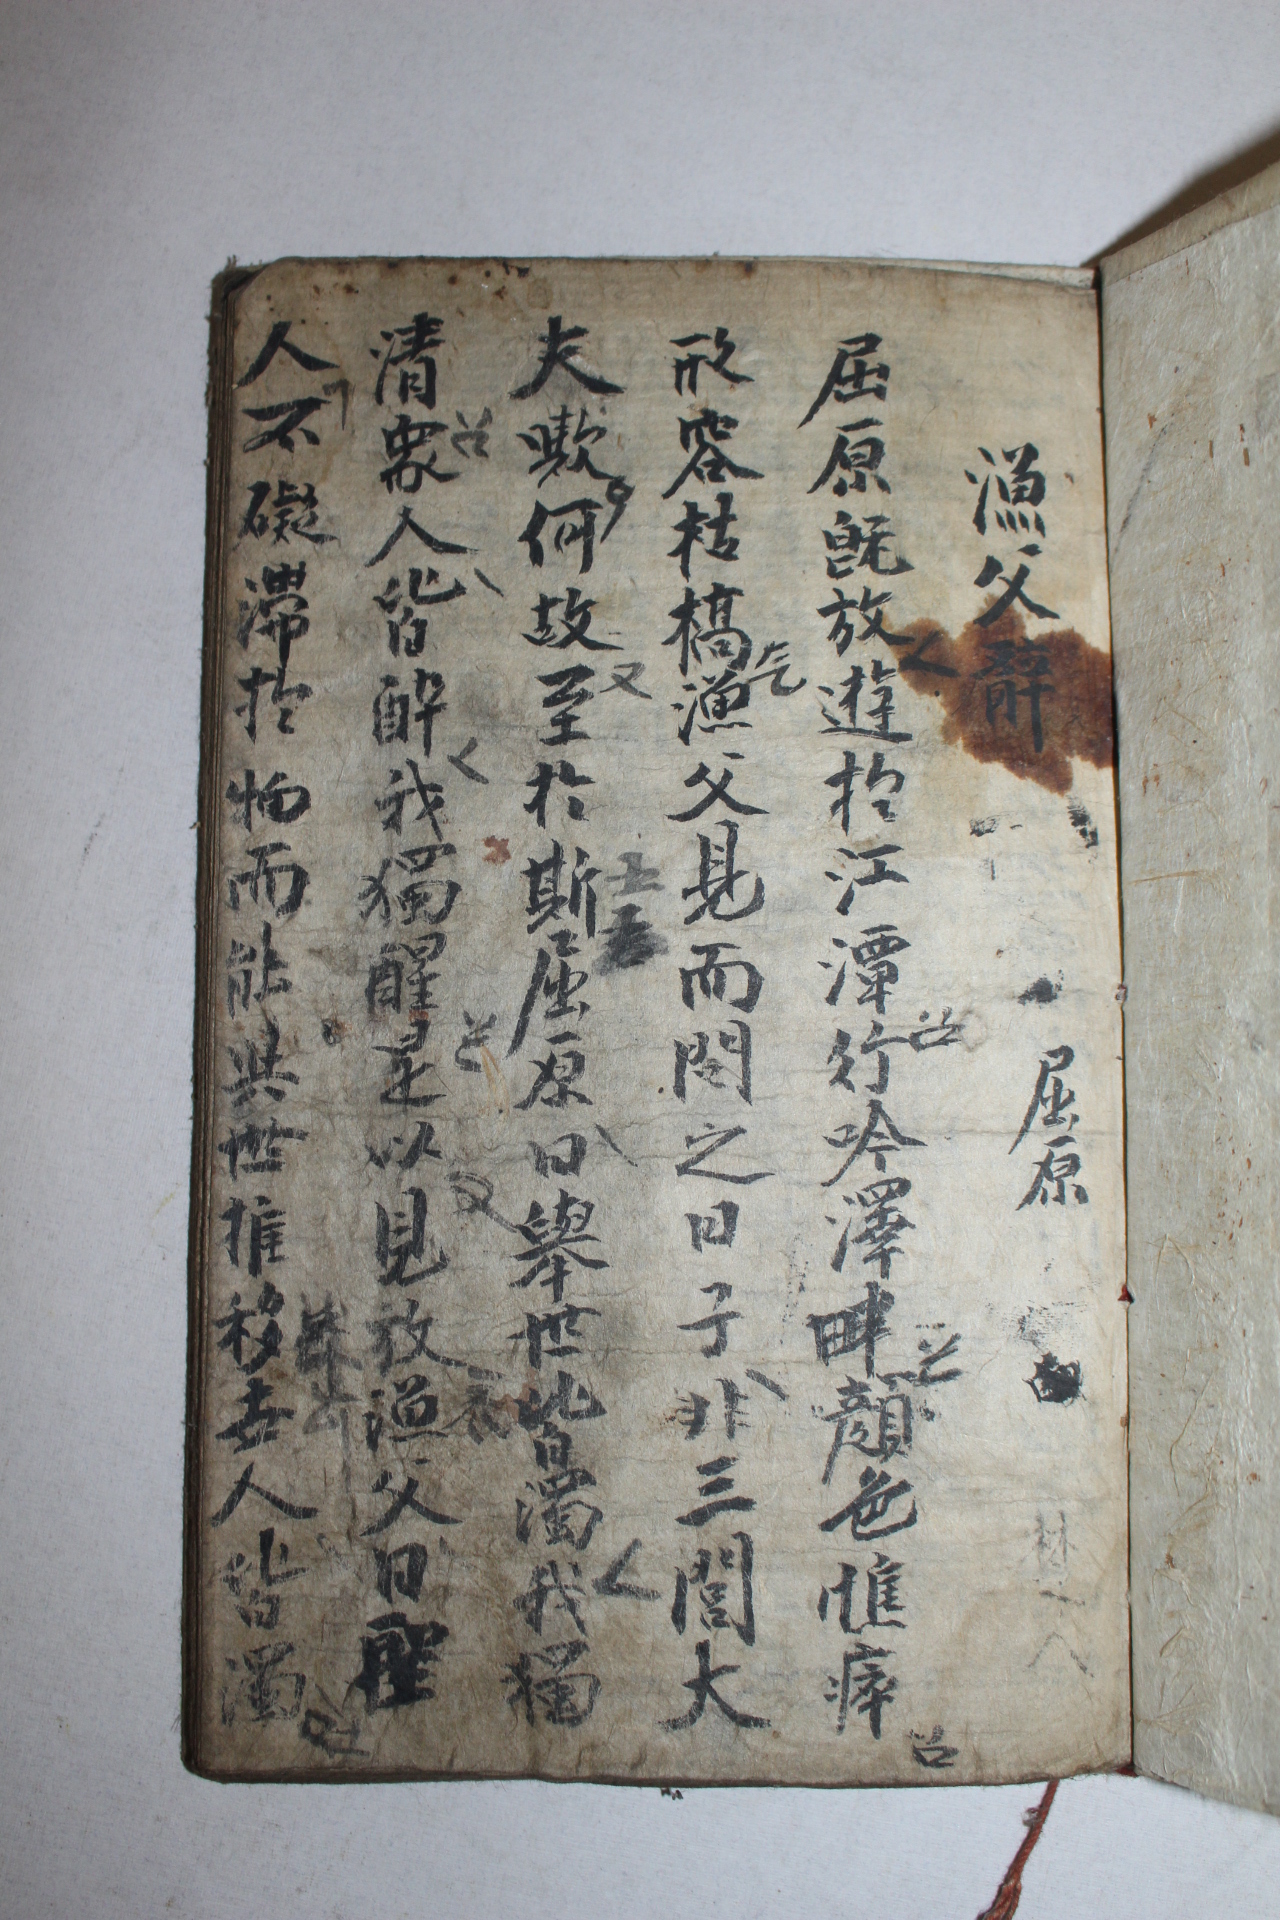 漁父辭 屈原
屈原旣放遊於江潭行吟澤畔顔色憔瘁
形容枯槁漁父見而問之曰子非三閭大
夫歟何故至於斯屈原曰擧世皆濁我獨
清衆人皆醉我獨醒是以見放漁父曰聖
人不礙滯於物而能與世推移世人皆濁